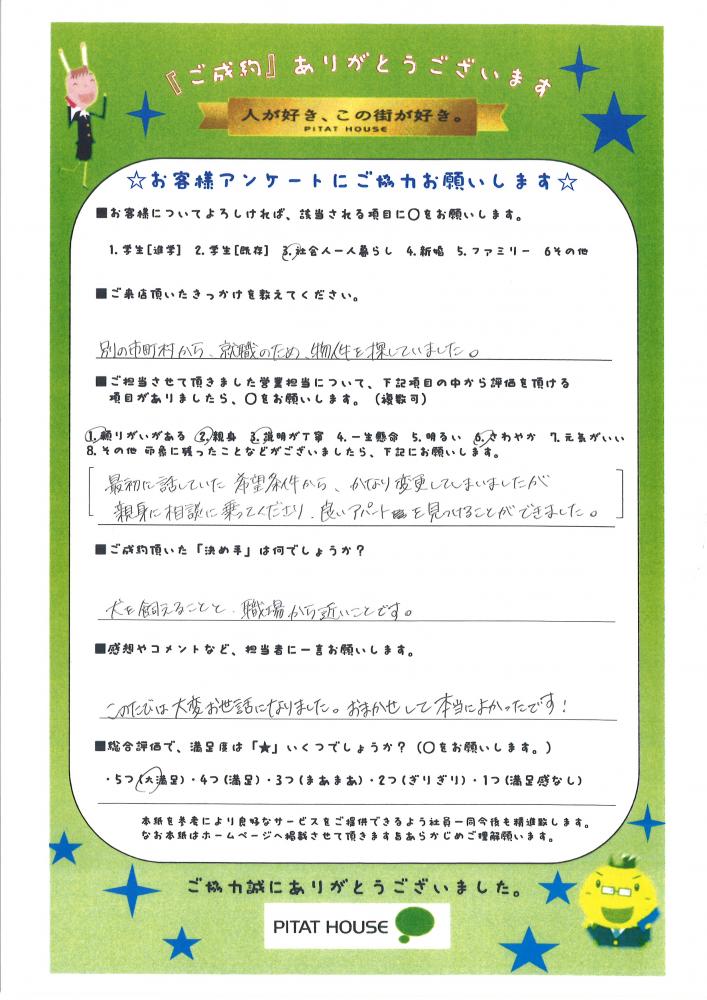 『ご成約』ありがとうございます
人が好き、この街が好き。
PITAT HOUSE
☆お客様アンケートにご協力お願いします☆
■お客様についてよろしければ、該当される項目に〇をお願いします。
1.学生[進学] 2.学生[既存] 3.社会人一人暮らし 4.新婚 5.ファミリー 6その他
■ご来店頂いたきっかけを教えてください。
別の市町村から、就職のため、物件を探していました。
■ご担当させて頂きました営業担当について、下記項目の中から評価を頂ける
項目がありましたら、〇をお願いします。(複数可)
1.頼りがいがある 2.親身 3.説明が丁寧 4.一生懸命 5.明るい 6.さわやか 7.元気がいい
8.その他 印象に残ったことなどがございましたら、下記にお願いします。
最初に話していた希望条件から、かなり変更してしまいましたが
親身に相談に乗ってくださり、良いアパートを見つけることができました。
■ご成約頂いた「決め手」は何でしょうか?
犬を飼えることと、職場から近いことです。
■感想やコメントなど、担当者に一言お願いします。
このたびは大変お世話になりました。おまかせして本当によかったです!
■総合評価で、満足度は「★」いくつでしょうか?(〇をお願いします。)
・5つ(大満足)・4つ(満足)・3つ(まあまあ)・2つ(ぎりぎり)・1つ(満足感なし)
本紙を参考により良好なサービスをご提供できるよう社員一同今後も精進致します。
なお本紙はホームページへ掲載させて頂きます旨あらかじめご理解願います。
ご協力誠にありがとうございました。
PITAT HOUSE